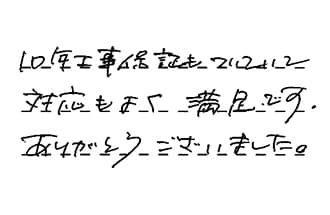 10年工事保証もついていて
対応もよく 満足です.
ありがとうございました。